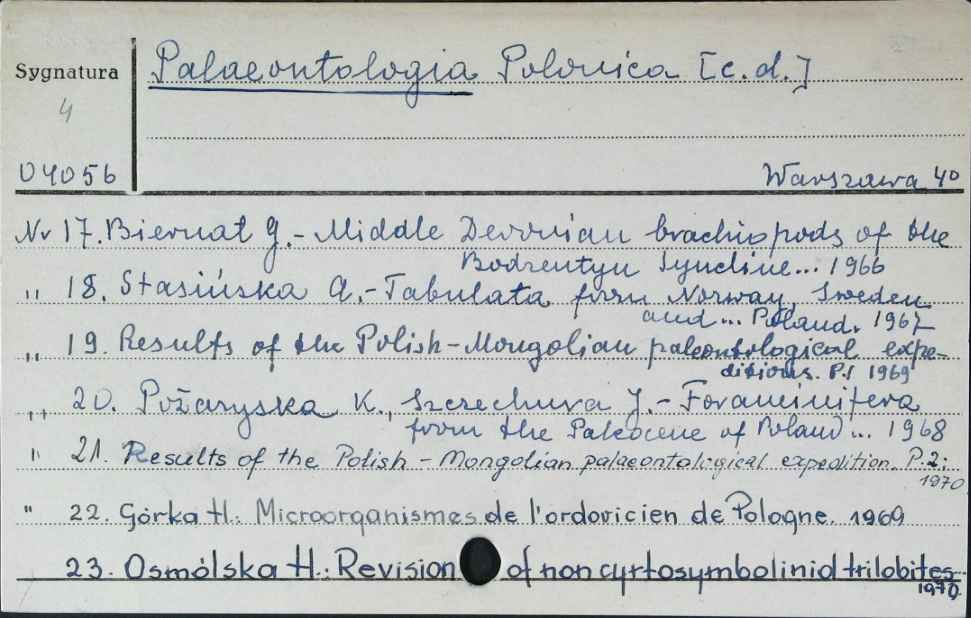 Sygnatura
Palaeontologia Polonica [c.d.]
4
04056
Warszawa 40
Nr 17. Biernat G. - Middle Devonian brachiopods of the
Bodzentyn Syncline... 1966
,, 18. Stasińska A. - Tabulata from Norway, Sweden
and... Poland. 1967
,, 19. Results of the Polish-Mongolian paleontological expe-
ditions. P.1 1969
,, 20. Pożaryska K., Szczechura J. - Foraminifera
from the Paleocene of Poland... 1968
" 21. Results of the Polish - Mongolian palaeontological expedition. P. 2:
1970
" 22. Górka H.: Microorganismes de l'ordovicien de Pologne. 1969
23. Osmólska H.: Revision of non cyrtosymbolinid trilobites.
1970